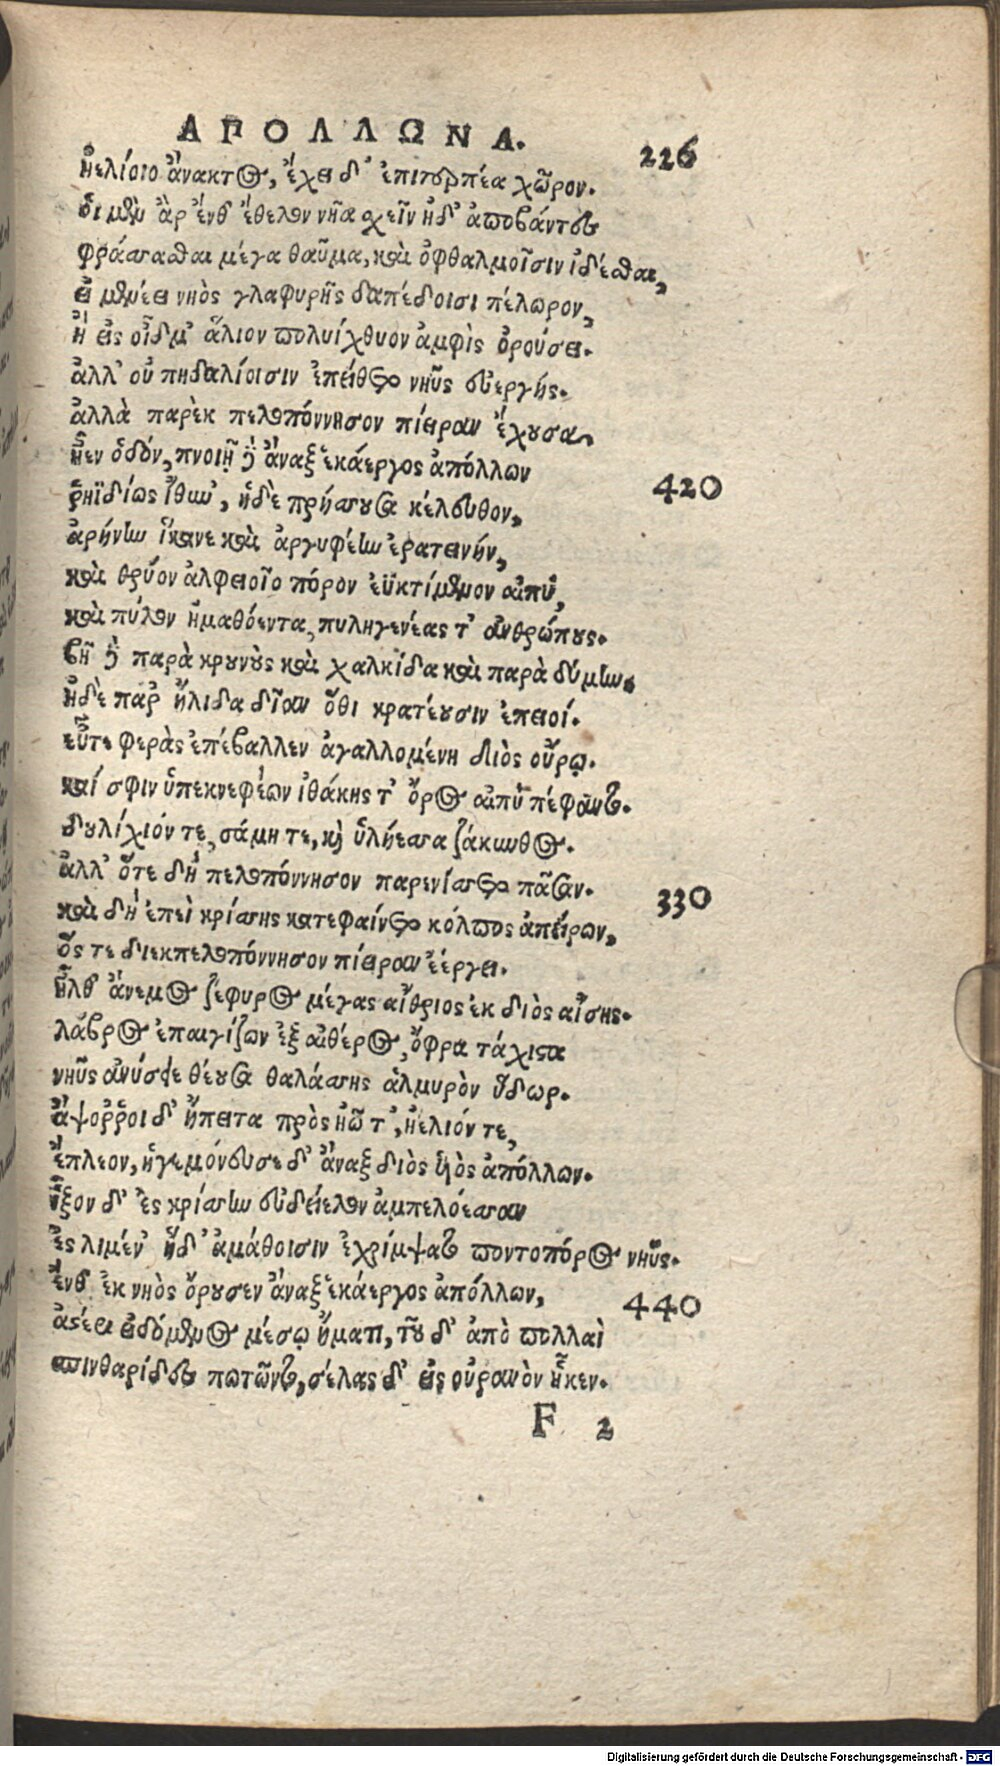 ΑΠΟΛΛΩΝΑ. 226
ἠελίοιο ἄνακτος, ἔχει δ' ἐπιτερπέα χῶρον.
οἱ μὲν ἂρ ἔνθ' ἔθελον νῆα σχεῖν ἠδ' ἀποβάντες
φράσσασθαι μέγα θαῦμα, καὶ ὀφθαλμοῖσιν ἰδέσθαι,
εἰ μενέει νηὸς γλαφυρῆς δαπέδοισι πέλωρον,
ἢ εἰς οἶδμ' ἅλιον πολυίχθυον ἀμφὶς ὀρούσει.
ἀλλ' οὐ πηδαλίοισιν ἐπείθετο νηῦς εὐεργής.
ἀλλὰ παρὲκ πελοπόννησον πίειραν ἔχουσα,
ἤεν ὁδόν, πνοιῇ δὲ ἄναξ ἑκάεργος ἀπόλλων
ῥηϊδίως ἴθων', ἡδὲ πρήσσουσα κέλευθον, 420
ἀρήνην ἵκανε καὶ ἀργυφέην ἐρατεινήν,
καὶ θρύον ἀλφειοῖο πόρον ἐϋκτίμενον αἰπύ,
καὶ πύλον ἠμαθόεντα, πυληγενέας τ' ἀνθρώπους.
βῆ δὲ παρὰ κρουνοὺς καὶ χαλκίδα καὶ παρὰ δύμην.
ἠδὲ παρ' ἤλιδα δῖαν ὅθι κρατέουσιν ἐπειοί.
εὖτε φερὰς ἐπέβαλλεν ἀγαλλομένη διὸς οὔρῳ.
καί σφιν ὑπεκνεφέων ἰθάκης τ' ὄρος αἰπὺ πέφαντο.
δουλίχιόν τε, σάμη τε, καὶ ὑλήεσσα ζάκυνθος.
ἀλλ' ὅτε δὴ πελοπόννησον παρενίσσετο πᾶσαν.
καὶ δὴ ἐπεὶ κρίσσης κατεφαίνετο κόλπος ἀπείρων, 330
ὅς τε διεκπελοπόννησον πίειραν ἐέργει.
ἦλθ' ἄνεμος ζέφυρος μέγας αἴθριος ἐκ διὸς αἴσης.
λάβρος ἐπαιγίζων ἐξ αἰθέρος, ὄφρα τάχιστα
νηῦς ἀνύσειε θέουσα θαλάσσης ἁλμυρὸν ὕδωρ.
ἄψοῤῥοι δ' ἤπειτα πρὸς ἠῶ τ', ἠελιόν τε,
ἔπλεον, ἡγεμόνευσε δ' ἄναξ διὸς υἱὸς ἀπόλλων.
ἷξον δ' ἐς κρίσσην εὐδείελον ἀμπελόεσσαν
ἐς λιμέν' ἠδ' ἀμάθοισιν ἐχρίμψατο ποντοπόρος νηῦς.
ἔνθ' ἐκ νηὸς ὄρουσεν ἄναξ ἑκάεργος ἀπόλλων, 440
ἀστέει εἰδόμενος μέσῳ ἤματι, τοῦ δ' ἀπὸ πολλαὶ
σπινθαρίδες πωτῶντο, σέλας δ' εἰς οὐρανὸν ἧκεν.
F 2
Digitalisierung gefördert durch die Deutsche Forschungsgemeinschaft - DFG